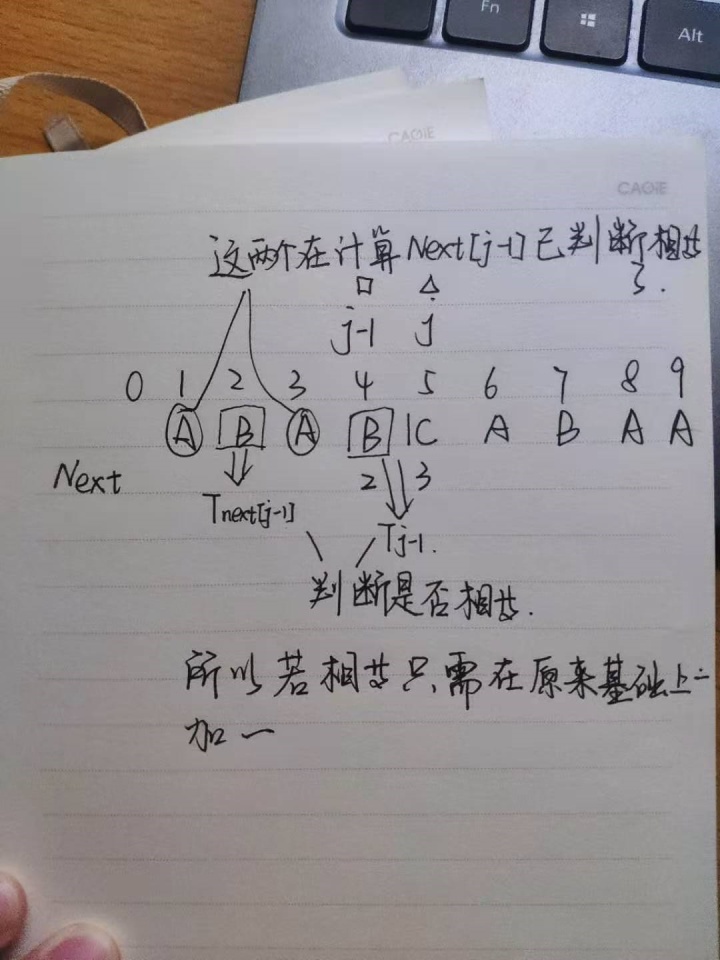 Fn
Alt
CAGIE
CAGIE
这两个在计算Next[j-1]已判断相等
了.
□ △
j-1 j
0 1 2 3 4 5 6 7 8 9
A B A B C A B A A
Next 2 3
Tnext[j-1]
Tj-1.
判断是否相等.
所以若相等只需在原来基础上
加一